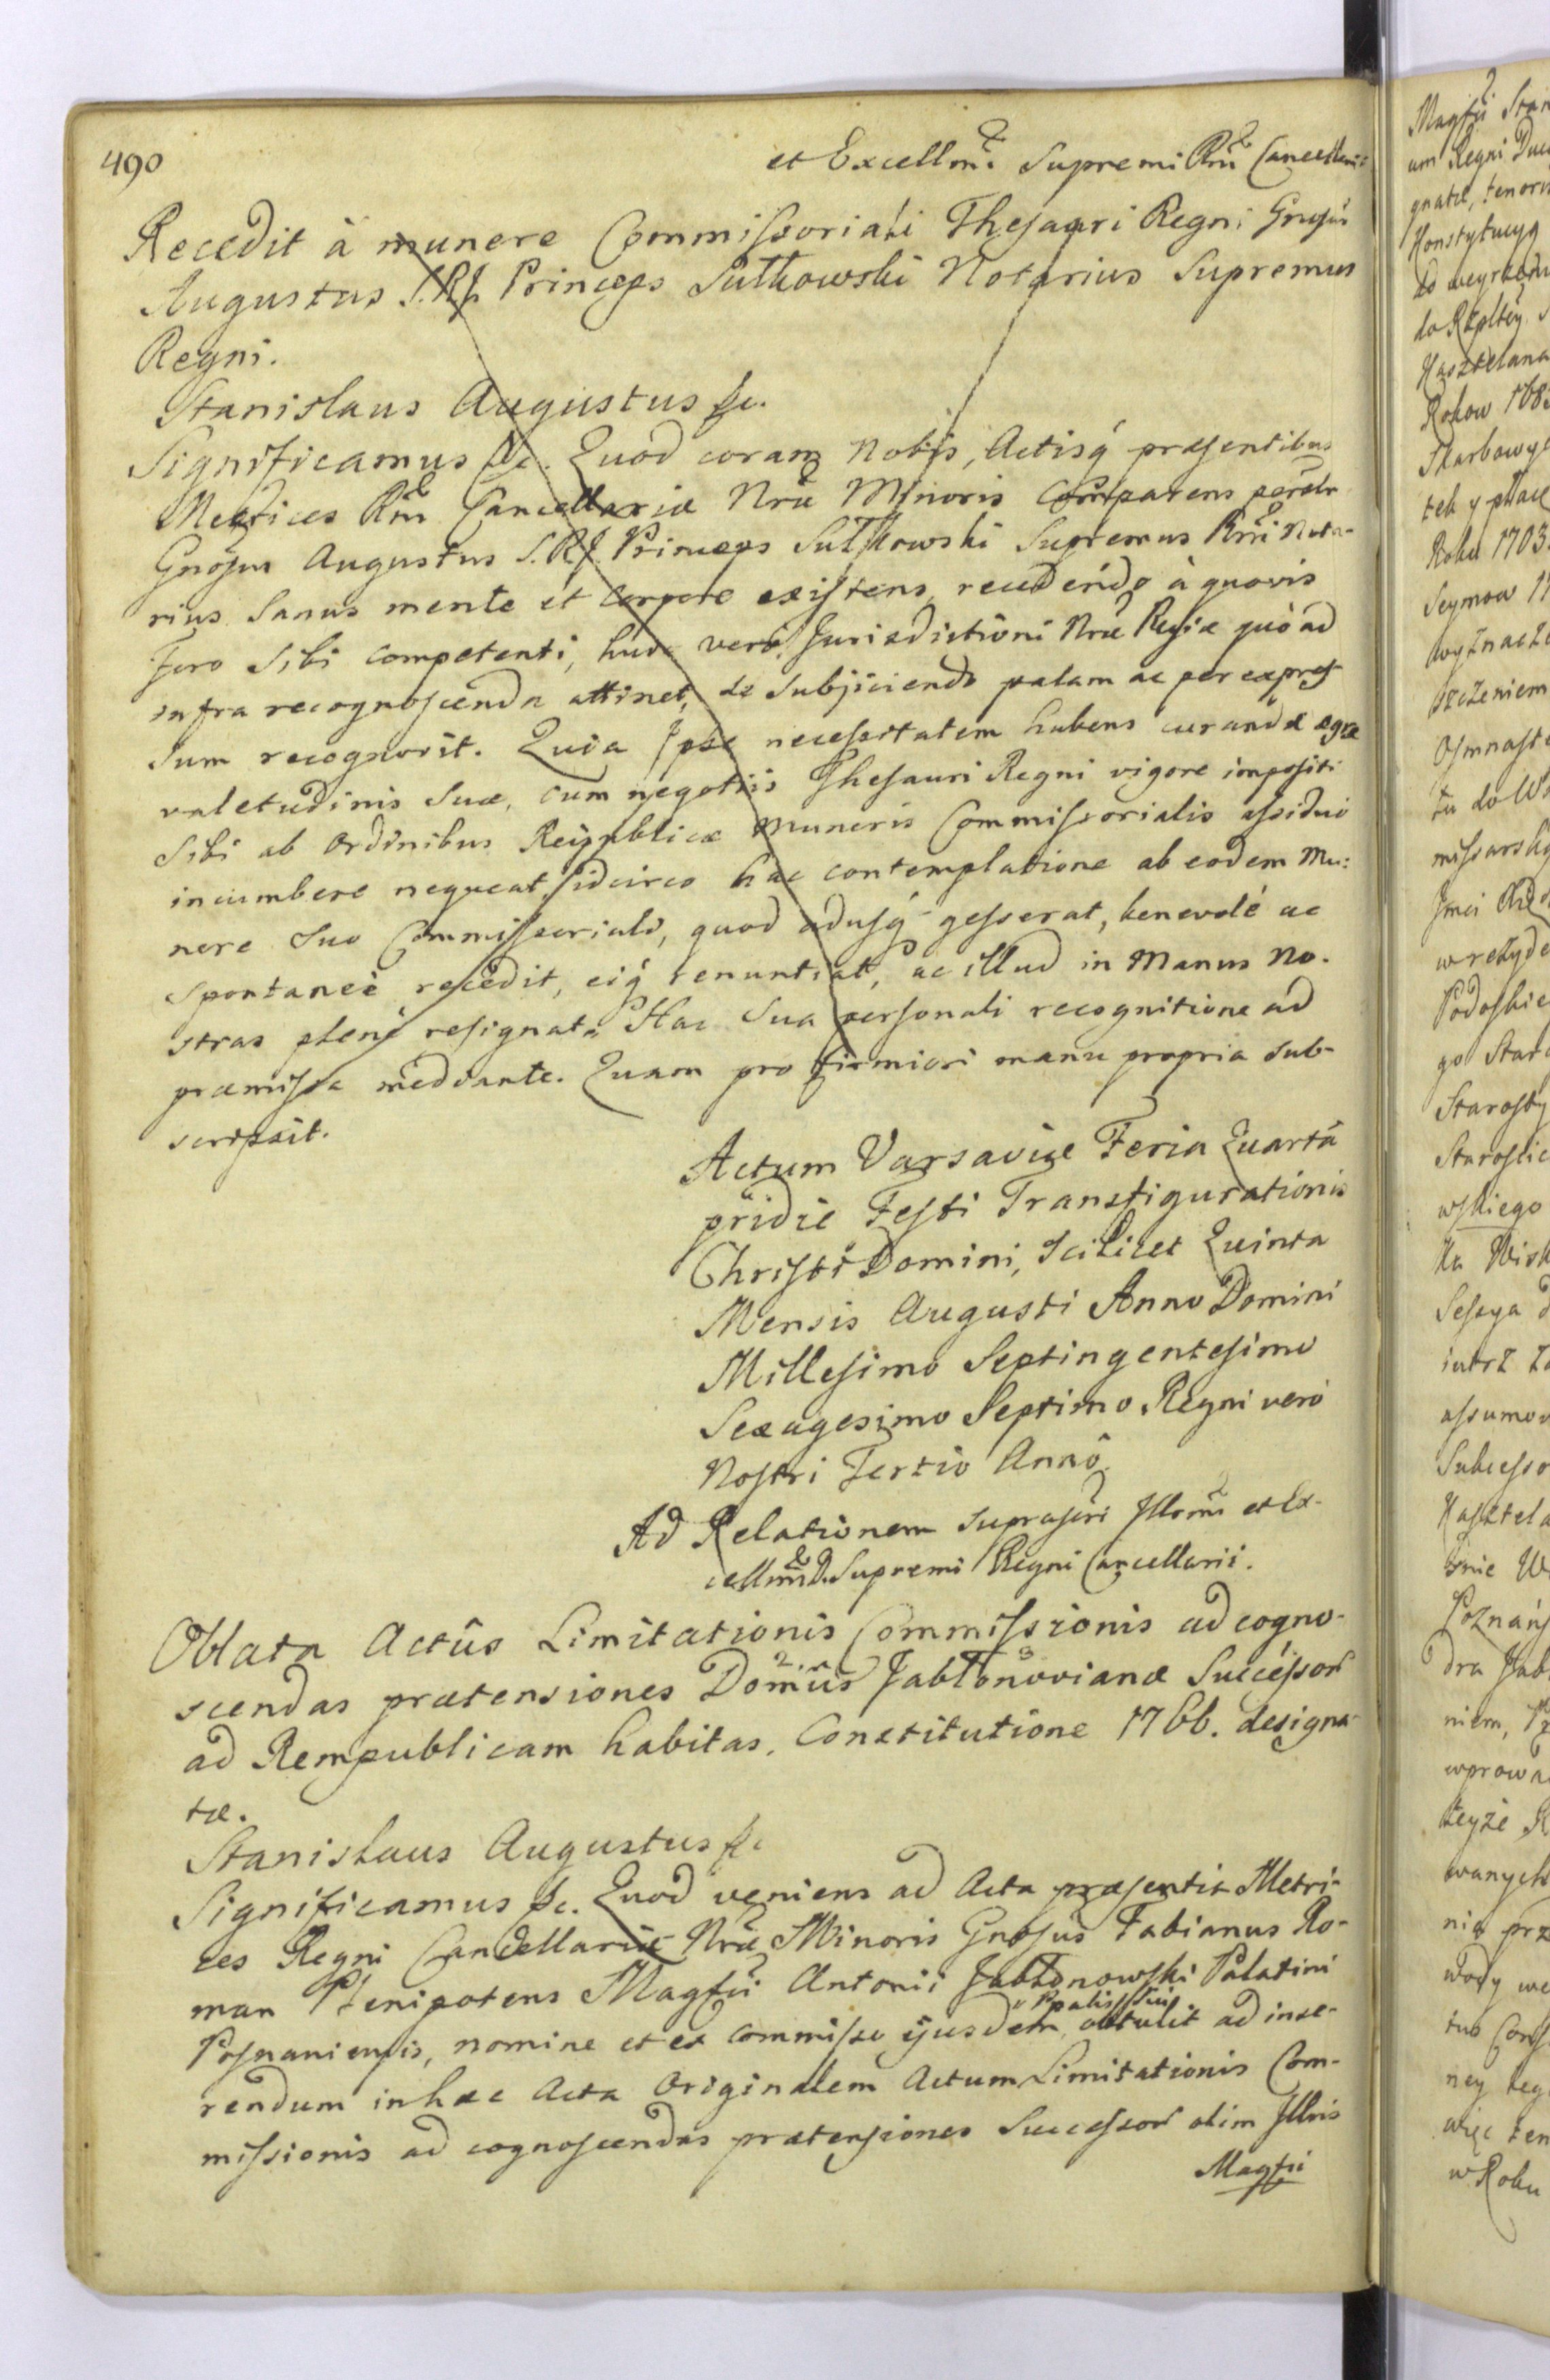 490
et Excellmi Supremi Rni Cancellarii
Recedit à munere Commissoriali Thesauri Regni Gnosus
Augustus S.R.J. Princeps Sułkowski Notarius Supremus
Regni.
Stanislaus Augustus &c.
Significamus &c. Quod coram Nobis, Actisq præsentibus
Metrices Rni Cancellariæ Nræ Minoris Comparens persolr
Gnosus Augustus S.R.J. Princeps Sułkowski Supremus Rni Nota-
rius Sanus mente et corpore existens, recedendo à quovis
Foro Sibi competenti, huic verò Jurisdictioni Nræ Regiæ quò ad
infra recognoscenda attinet, se subjiciendo palam ac per expres
sum recognovit. Quia Ipse necessitatem habens curandæ ægræ
valetudinis Suæ, cum negotiis Thesauri Regni vigore impositi
Sibi ab Ordinibus Reipublicæ Muneris Commissorialis assiduò
incumbere nequeat, idcirco hac contemplatione ab eodem Mu:
nere Suo Commissoriali, quod adusq gesserat, benevolé ac
spontaneè recedit, eiq renuntiat, ac illud in Manus No-
stras plenè resignat. Hac Sua personali recognitione ad
præmissa mediante. Quam pro firmiori manu propria sub-
scripsit.
Actum Varsaviæ Feria Quartâ
pridie Festi Transfigurationis
Christi Domini, scilicet Quinta
Mensis Augusti Anno Domini
Millesimo Septingentesimo
Sexagesimo Septimo Regni verò
Nostri Tertio Annô.
Ad Relationem suprascri Illrmi et Ex-
cellmi D. Supremi Regni Cancellarii.
Oblata Actûs Limitationis Commissionis ad cogno-
scendas prætensiones Domûs Jabłonovianæ Successor
ad Rempublicam habitas, Constitutione 1766. designa-
tæ.
Stanislaus Augustus &c
Significamus &c. Quod veniens ad Acta præsentis Metri-
ces Regni Cancellariæ Nræ Minoris Gnosus Fabianus Ro-
man Plenipotens Magfci Antonii Jabłonowski Palatini
Posnaniensis, nomine et ex commisso ejusdem Ppalis Sui obtulit ad inse-
rendum in hæc Acta Originalem Actum Limitationis Com-
missionis ad cognoscendas prætensiones Successor olim Illris
Magfci
Magfci Stan
um Regni Duc
gnatæ, tenoris
Konstytucyą
do Rzpltey
Kasztelana
Rokow 168
Skarbowy
tek y płac
Roku 1703.
Seymow 17
wyznacze
szczeniem
Osmnaste
tu do W
missarską
w rezyde
Podoskie
go Staro
Starosty
Starościc
wskiego
Sessya d
assumow
Sukcesso
Kasztela
Poznańs
dra Jab
niem, Prz
wprowa
teyże R
wanych
nia prz
tus Cons
ney teg
więc ten
w Roku